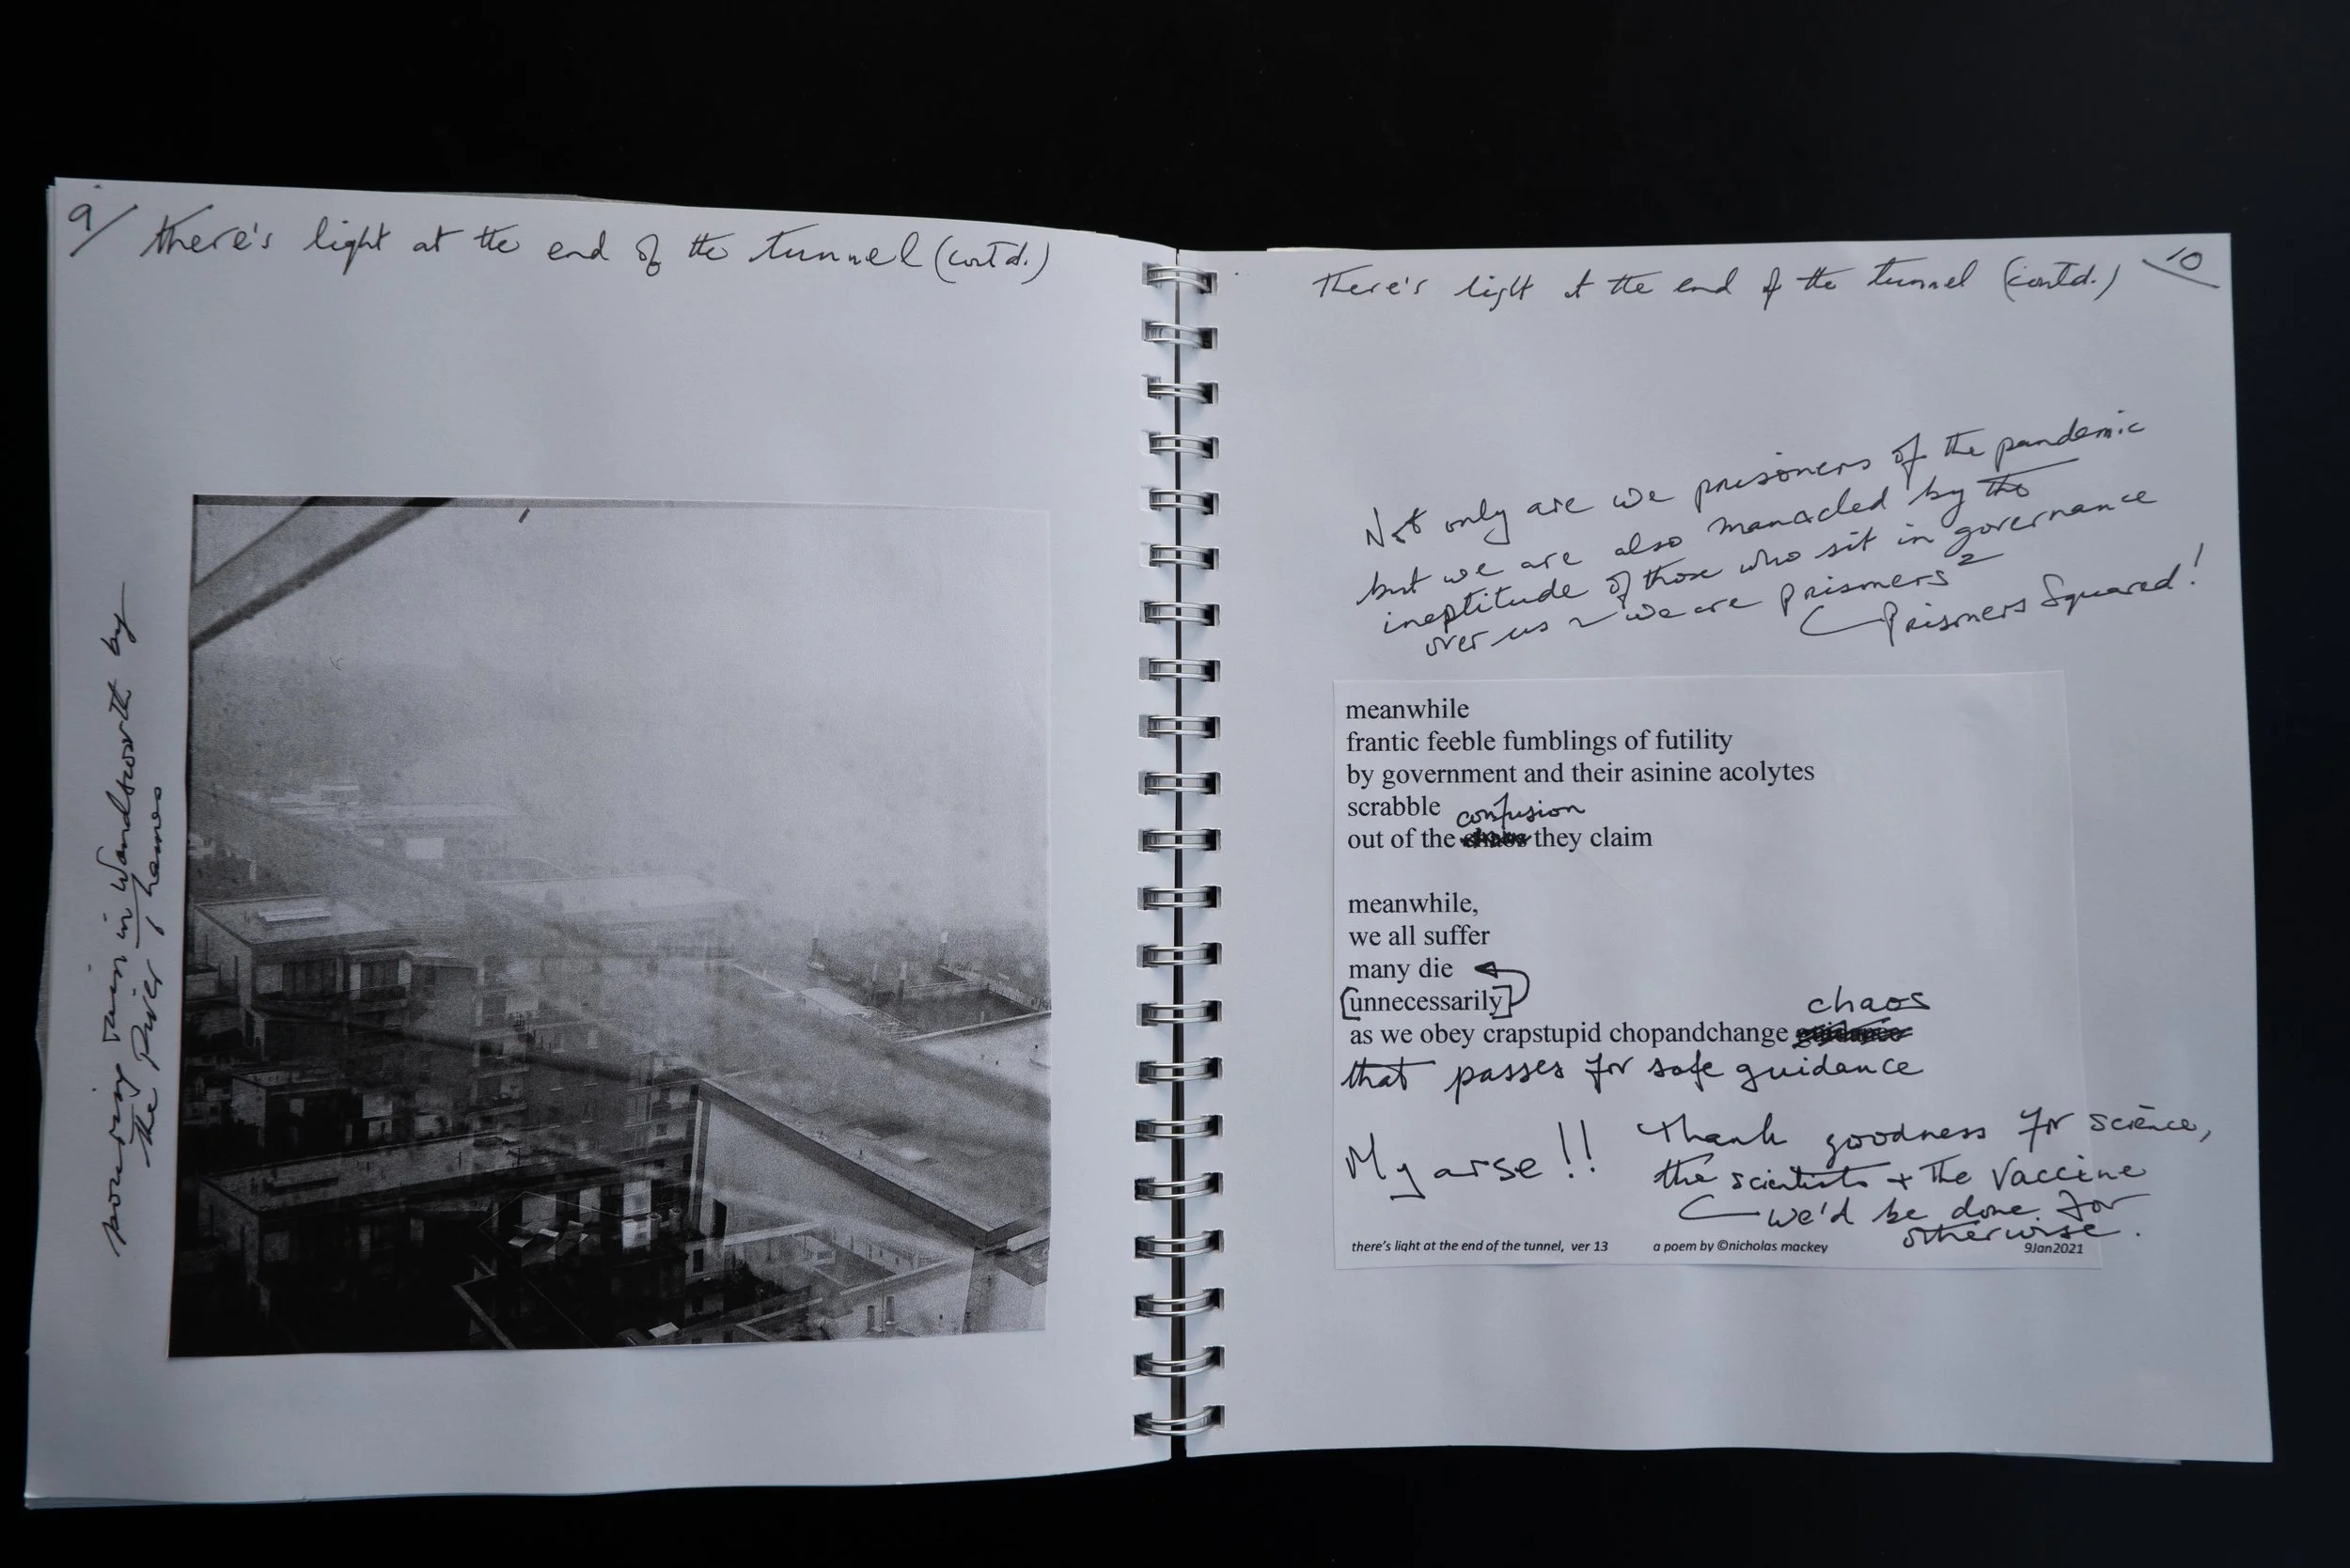 9/ There's light at the end of the tunnel (contd.)
pouring rain in Wandsworth by
the River Thames
There's light at the end of the tunnel (contd.) 10
Not only are we prisoners of the pandemic
but we are also manacled by the
ineptitude of those who sit in governance
over us ~ we are Prisoners²
Prisoners Squared!
meanwhile
frantic feeble fumblings of futility
by government and their asinine acolytes
scrabble
confusion
out of the chaos they claim
meanwhile,
we all suffer
many die
[unnecessarily]
chaos
as we obey crapstupid chopandchange guidance
that passes for safe guidance
My arse!!
Thank goodness for science,
the scientists + the Vaccine
we'd be done for
otherwise.
there's light at the end of the tunnel, ver 13 a poem by ©nicholas mackey 9Jan2021